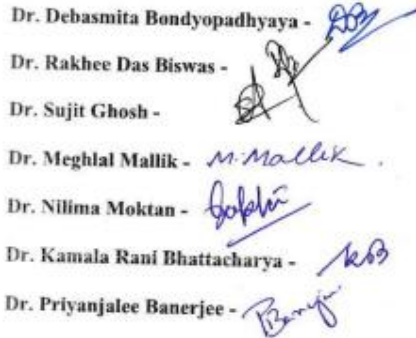 Dr. Debasmita Bondyopadhyaya - DB
Dr. Rakhee Das Biswas -
Dr. Sujit Ghosh -
Dr. Meghlal Mallik - M. Mallik.
Dr. Nilima Moktan -
Dr. Kamala Rani Bhattacharya - KB
Dr. Priyanjalee Banerjee - PBanerjee